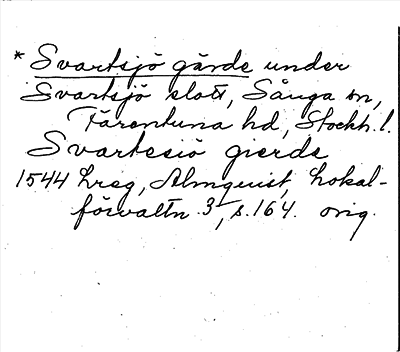 * Svartsjö gärde under
Svartsjö slott, Sånga sn,
Färentuna hd, Stockh. l.
Svartesiö gierde
1544 Lreg, Almquist, Lokal-
förvaltn. 3, s. 164. orig.